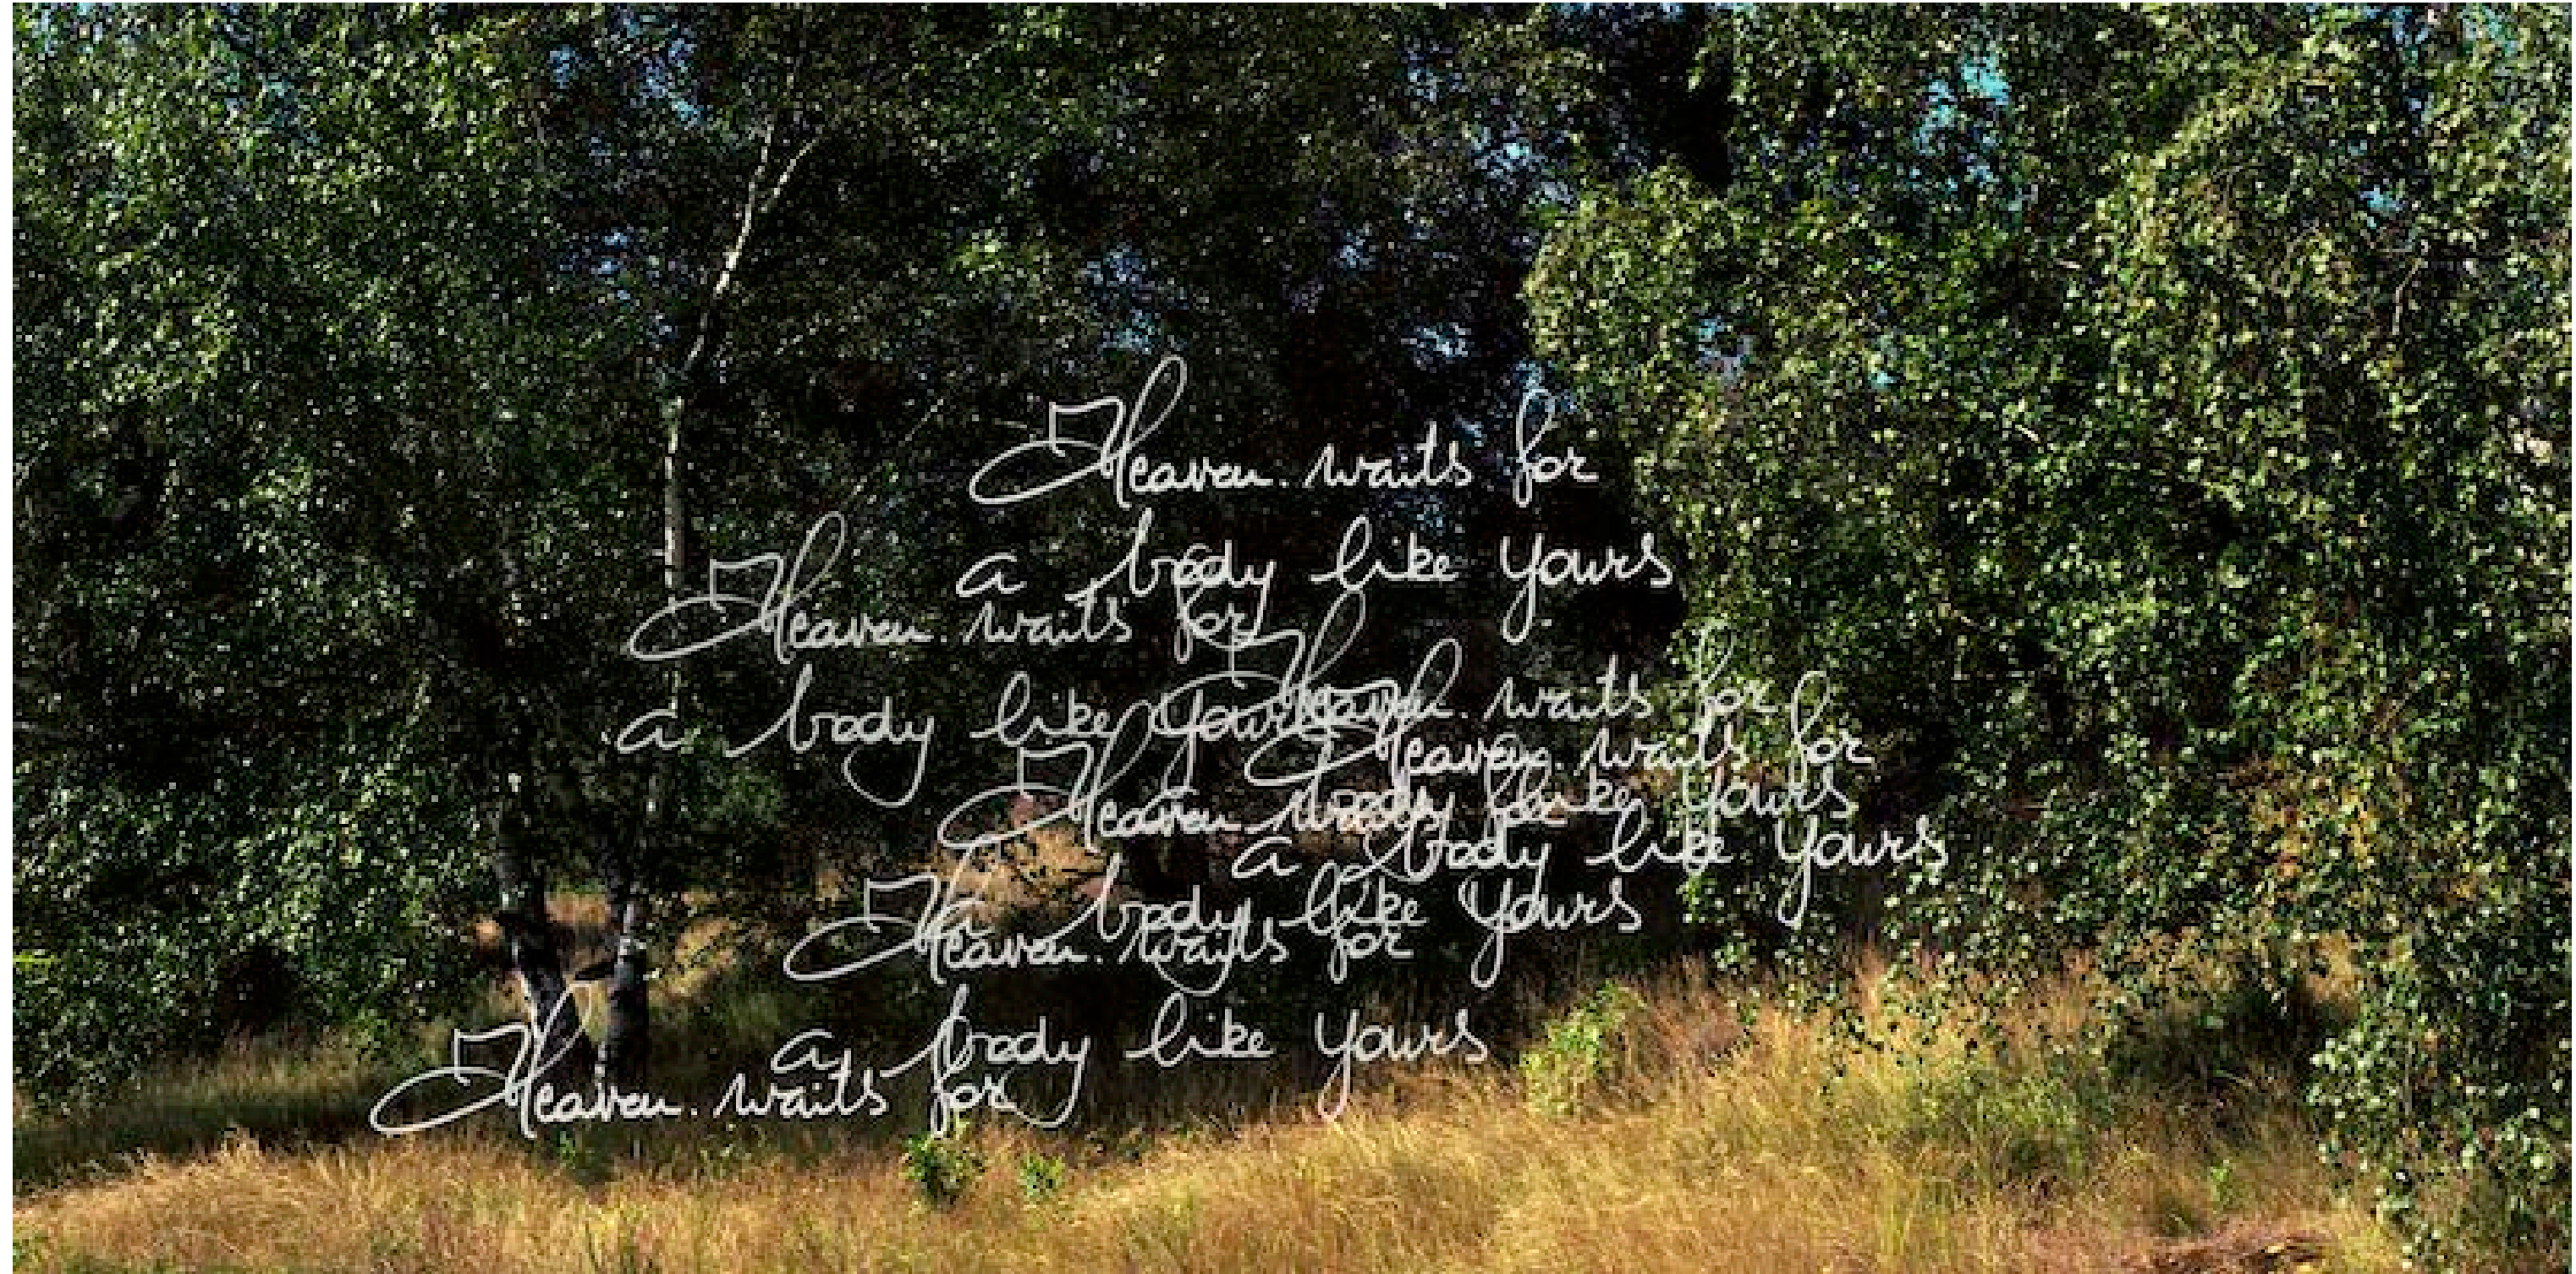 Heaven waits for
a body like yours
Heaven waits for
a body like yours
Heaven waits for
Heaven waits for
Heaven waits for
a body like yours
a body like yours
a body like yours
Heaven waits for
a body like yours
Heaven waits for